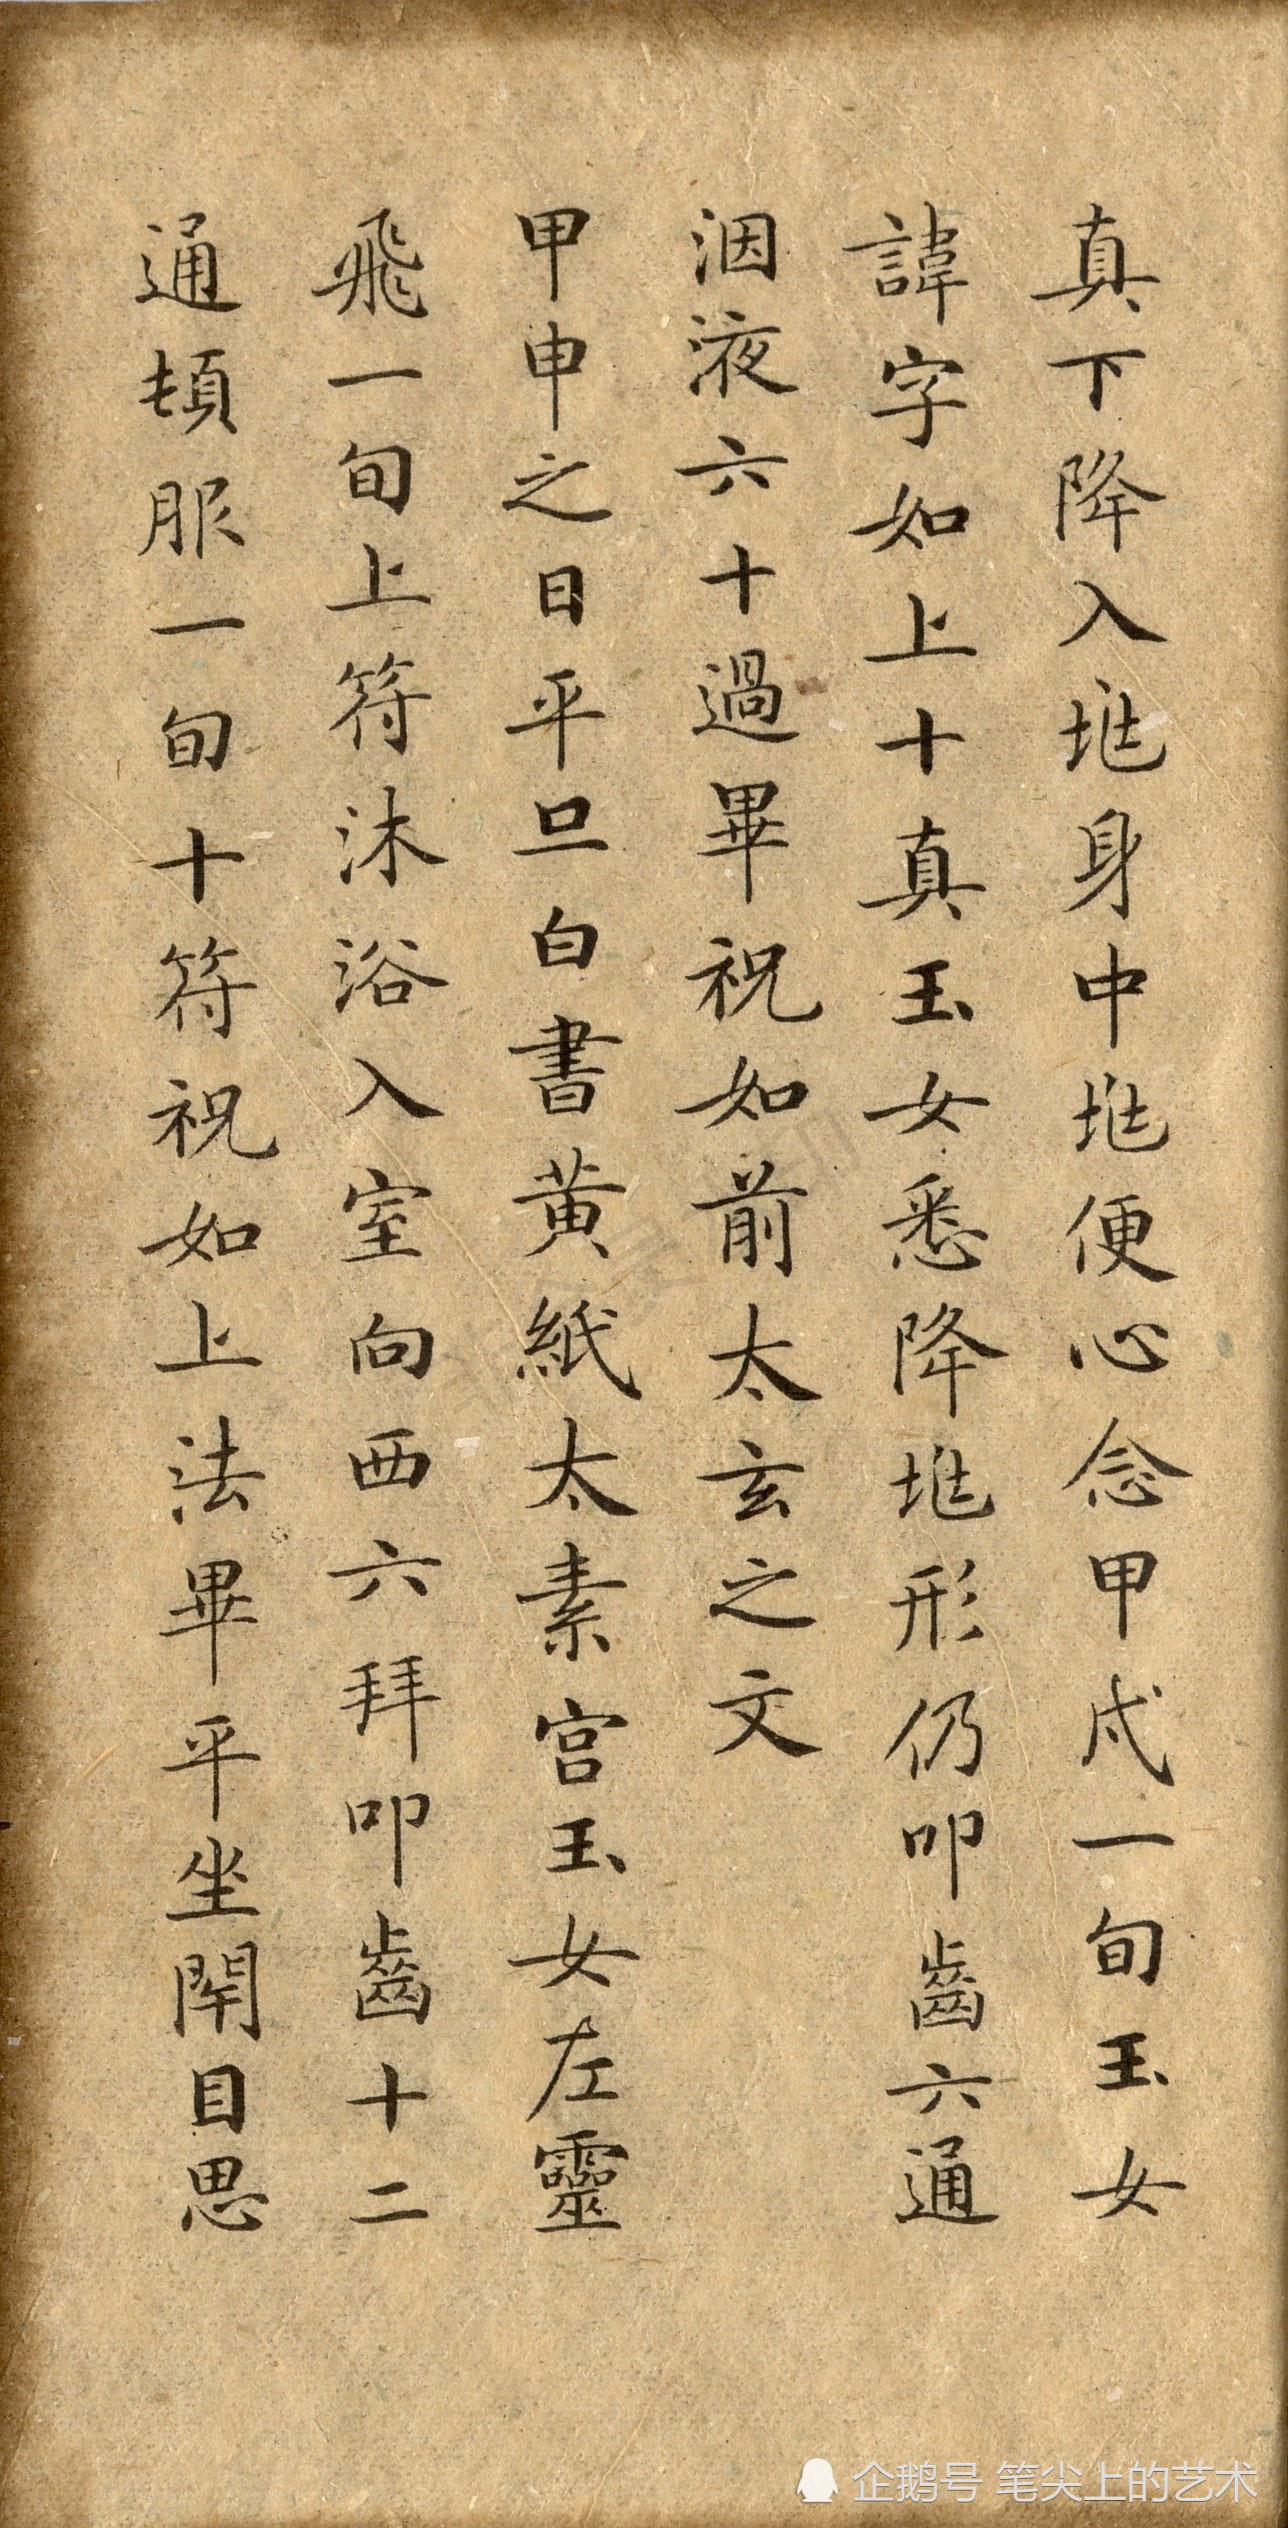 真下降入垗身中垗便心念甲戌一旬玉女
諱字如上十真玉女悉降垗形仍叩齒六通
洇液六十過畢祝如前太玄之文
甲申之日平旦白書黄紙太素宫玉女左靈
飛一旬上符沐浴入室向西六拜叩齒十二
通頓服一旬十符祝如上法畢平坐閇目思
企鹅号 笔尖上的艺术